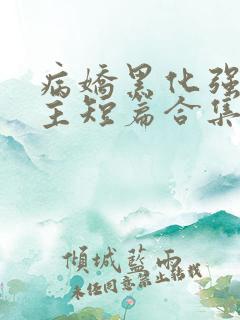 病嬌黑化强
主短篇合集
傾城藍雨
未经同意禁止转载